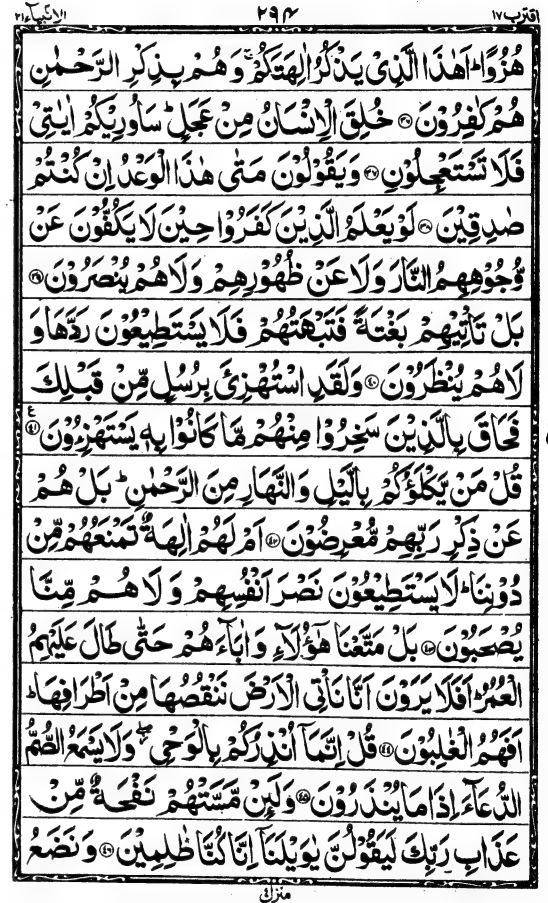 اقترب ١٧ ٢٩٤ الانبياء ٢١
هُزُوًا ؕ اَهٰذَا الَّذِىْ يَذْكُرُ اٰلِهَتَكُمْ ۚ وَهُمْ بِذِكْرِ الرَّحْمٰنِ
هُمْ كٰفِرُوْنَ ﴿۳۶﴾ خُلِقَ الْاِنْسَانُ مِنْ عَجَلٍ ؕ سَاُورِيْكُمْ اٰيٰتِىْ
فَلَا تَسْتَعْجِلُوْنِ ﴿۳۷﴾ وَيَقُوْلُوْنَ مَتٰى هٰذَا الْوَعْدُ اِنْ كُنْتُمْ
صٰدِقِيْنَ ﴿۳۸﴾ لَوْ يَعْلَمُ الَّذِيْنَ كَفَرُوْا حِيْنَ لَا يَكُفُّوْنَ عَنْ
وُّجُوْهِهِمُ النَّارَ وَلَا عَنْ ظُهُوْرِهِمْ وَلَا هُمْ يُنْصَرُوْنَ ﴿۳۹﴾
بَلْ تَاْتِيْهِمْ بَغْتَةً فَتَبْهَتُهُمْ فَلَا يَسْتَطِيْعُوْنَ رَدَّهَا وَ
لَا هُمْ يُنْظَرُوْنَ ﴿۴۰﴾ وَلَقَدِ اسْتُهْزِئَ بِرُسُلٍ مِّنْ قَبْلِكَ
فَحَاقَ بِالَّذِيْنَ سَخِرُوْا مِنْهُمْ مَّا كَانُوْا بِهٖ يَسْتَهْزِءُوْنَ ﴿۴۱﴾ ع
قُلْ مَنْ يَّكْلَؤُكُمْ بِالَّيْلِ وَالنَّهَارِ مِنَ الرَّحْمٰنِ ؕ بَلْ هُمْ
عَنْ ذِكْرِ رَبِّهِمْ مُّعْرِضُوْنَ ﴿۴۲﴾ اَمْ لَهُمْ اٰلِهَةٌ تَمْنَعُهُمْ مِّنْ
دُوْنِنَا ؕ لَا يَسْتَطِيْعُوْنَ نَصْرَ اَنْفُسِهِمْ وَلَا هُمْ مِّنَّا
يُصْحَبُوْنَ ﴿۴۳﴾ بَلْ مَتَّعْنَا هٰٓؤُلَآءِ وَاٰبَآءَهُمْ حَتّٰى طَالَ عَلَيْهِمُ
الْعُمُرُ ؕ اَفَلَا يَرَوْنَ اَنَّا نَاْتِى الْاَرْضَ نَنْقُصُهَا مِنْ اَطْرَافِهَا ؕ
اَفَهُمُ الْغٰلِبُوْنَ ﴿۴۴﴾ قُلْ اِنَّمَاۤ اُنْذِرُكُمْ بِالْوَحْىِ ۖ وَلَا يَسْمَعُ الصُّمُّ
الدُّعَآءَ اِذَا مَا يُنْذَرُوْنَ ﴿۴۵﴾ وَلَئِنْ مَّسَّتْهُمْ نَفْحَةٌ مِّنْ
عَذَابِ رَبِّكَ لَيَقُوْلُنَّ يٰوَيْلَنَاۤ اِنَّا كُنَّا ظٰلِمِيْنَ ﴿۴۶﴾ وَنَضَعُ
منزل ٤